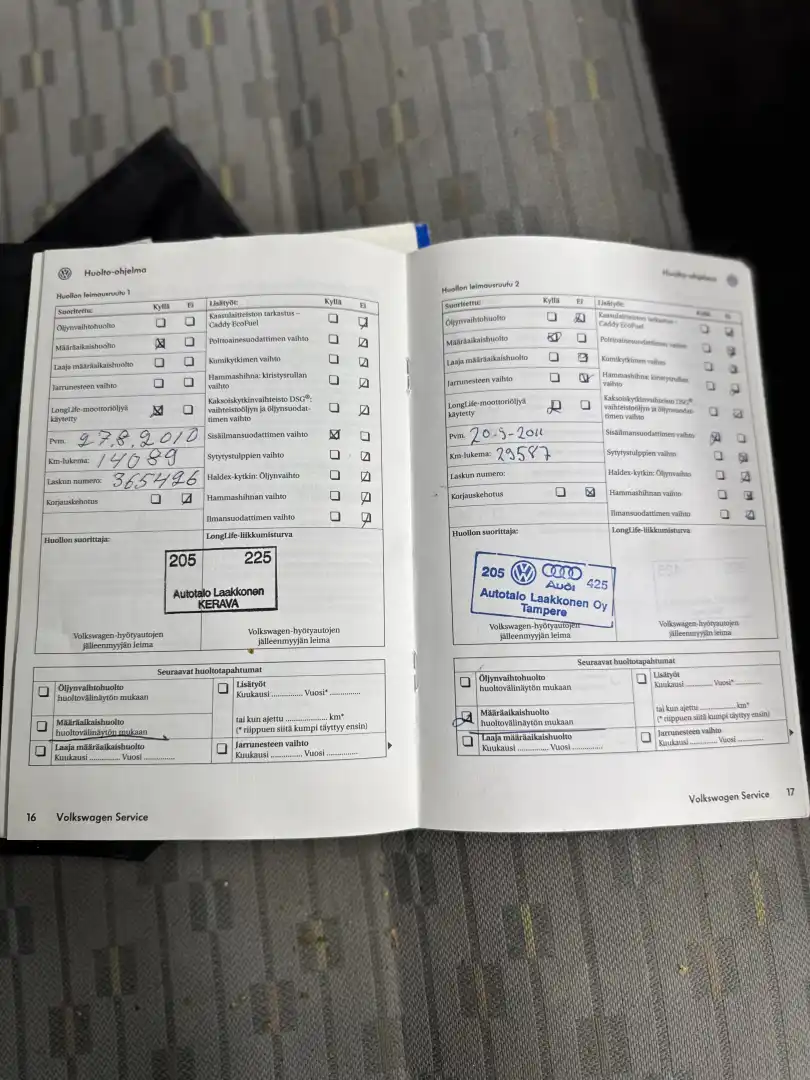 Huolto-ohjelma
Huollon leimausruutu 1
Suoritettu: Kyllä Ei Lisätyöt: Kyllä Ei
Öljynvaihtohuolto
Kaasulaitteiston tarkastus – Caddy EcoFuel
Määräaikaishuolto
Polttoainesuodattimen vaihto
Laaja määräaikaishuolto
Kumikytkimen vaihto
Jarrunesteen vaihto
Hammashihna: kiristysrullan vaihto
LongLife-moottoriöljyä käytetty
Kaksoiskytkinvaihteisto DSG®: vaihteistoöljyn ja öljynsuodattimen vaihto
Pvm. 27.8.2010
Sisäilmansuodattimen vaihto
Km-lukema: 14089
Sytytystulppien vaihto
Laskun numero: 365426
Haldex-kytkin: Öljynvaihto
Korjauskehotus
Hammashihnan vaihto
Ilmansuodattimen vaihto
Huollon suorittaja:
LongLife-liikkumisturva
205 225
Autotalo Laakkonen
KERAVA
Volkswagen-hyötyautojen
jälleenmyyjän leima
Volkswagen-hyötyautojen
jälleenmyyjän leima
Seuraavat huoltotapahtumat
Öljynvaihtohuolto
huoltovälinäytön mukaan
Lisätyöt
Kuukausi .............. Vuosi* ..............
Määräaikaishuolto
huoltovälinäytön mukaan
tai kun ajettu .................... km*
(* riippuen siitä kumpi täyttyy ensin)
Laaja määräaikaishuolto
Kuukausi .............. Vuosi ..............
Jarrunesteen vaihto
Kuukausi .............. Vuosi ..............
16 Volkswagen Service
Huolto-ohjelma
Huollon leimausruutu 2
Suoritettu: Kyllä Ei Lisätyöt: Kyllä Ei
Öljynvaihtohuolto
Kaasulaitteiston tarkastus – Caddy EcoFuel
Määräaikaishuolto
Polttoainesuodattimen vaihto
Laaja määräaikaishuolto
Kumikytkimen vaihto
Jarrunesteen vaihto
Hammashihna: kiristysrullan vaihto
LongLife-moottoriöljyä käytetty
Kaksoiskytkinvaihteisto DSG®: vaihteistoöljyn ja öljynsuodattimen vaihto
Pvm. 20-9-2011
Sisäilmansuodattimen vaihto
Km-lukema: 29587
Sytytystulppien vaihto
Laskun numero:
Haldex-kytkin: Öljynvaihto
Korjauskehotus
Hammashihnan vaihto
Ilmansuodattimen vaihto
Huollon suorittaja:
LongLife-liikkumisturva
205 Audi 425
Autotalo Laakkonen Oy
Tampere
Volkswagen-hyötyautojen
jälleenmyyjän leima
Volkswagen-hyötyautojen
jälleenmyyjän leima
Seuraavat huoltotapahtumat
Öljynvaihtohuolto
huoltovälinäytön mukaan
Lisätyöt
Kuukausi .............. Vuosi* ..............
Määräaikaishuolto
huoltovälinäytön mukaan
tai kun ajettu .................... km*
(* riippuen siitä kumpi täyttyy ensin)
Laaja määräaikaishuolto
Kuukausi .............. Vuosi ..............
Jarrunesteen vaihto
Kuukausi .............. Vuosi ..............
Volkswagen Service 17